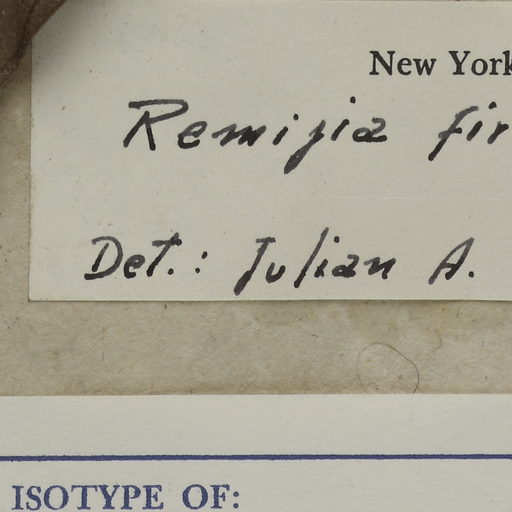 New York
Remijia fir
Det.: Julian A.
ISOTYPE OF: